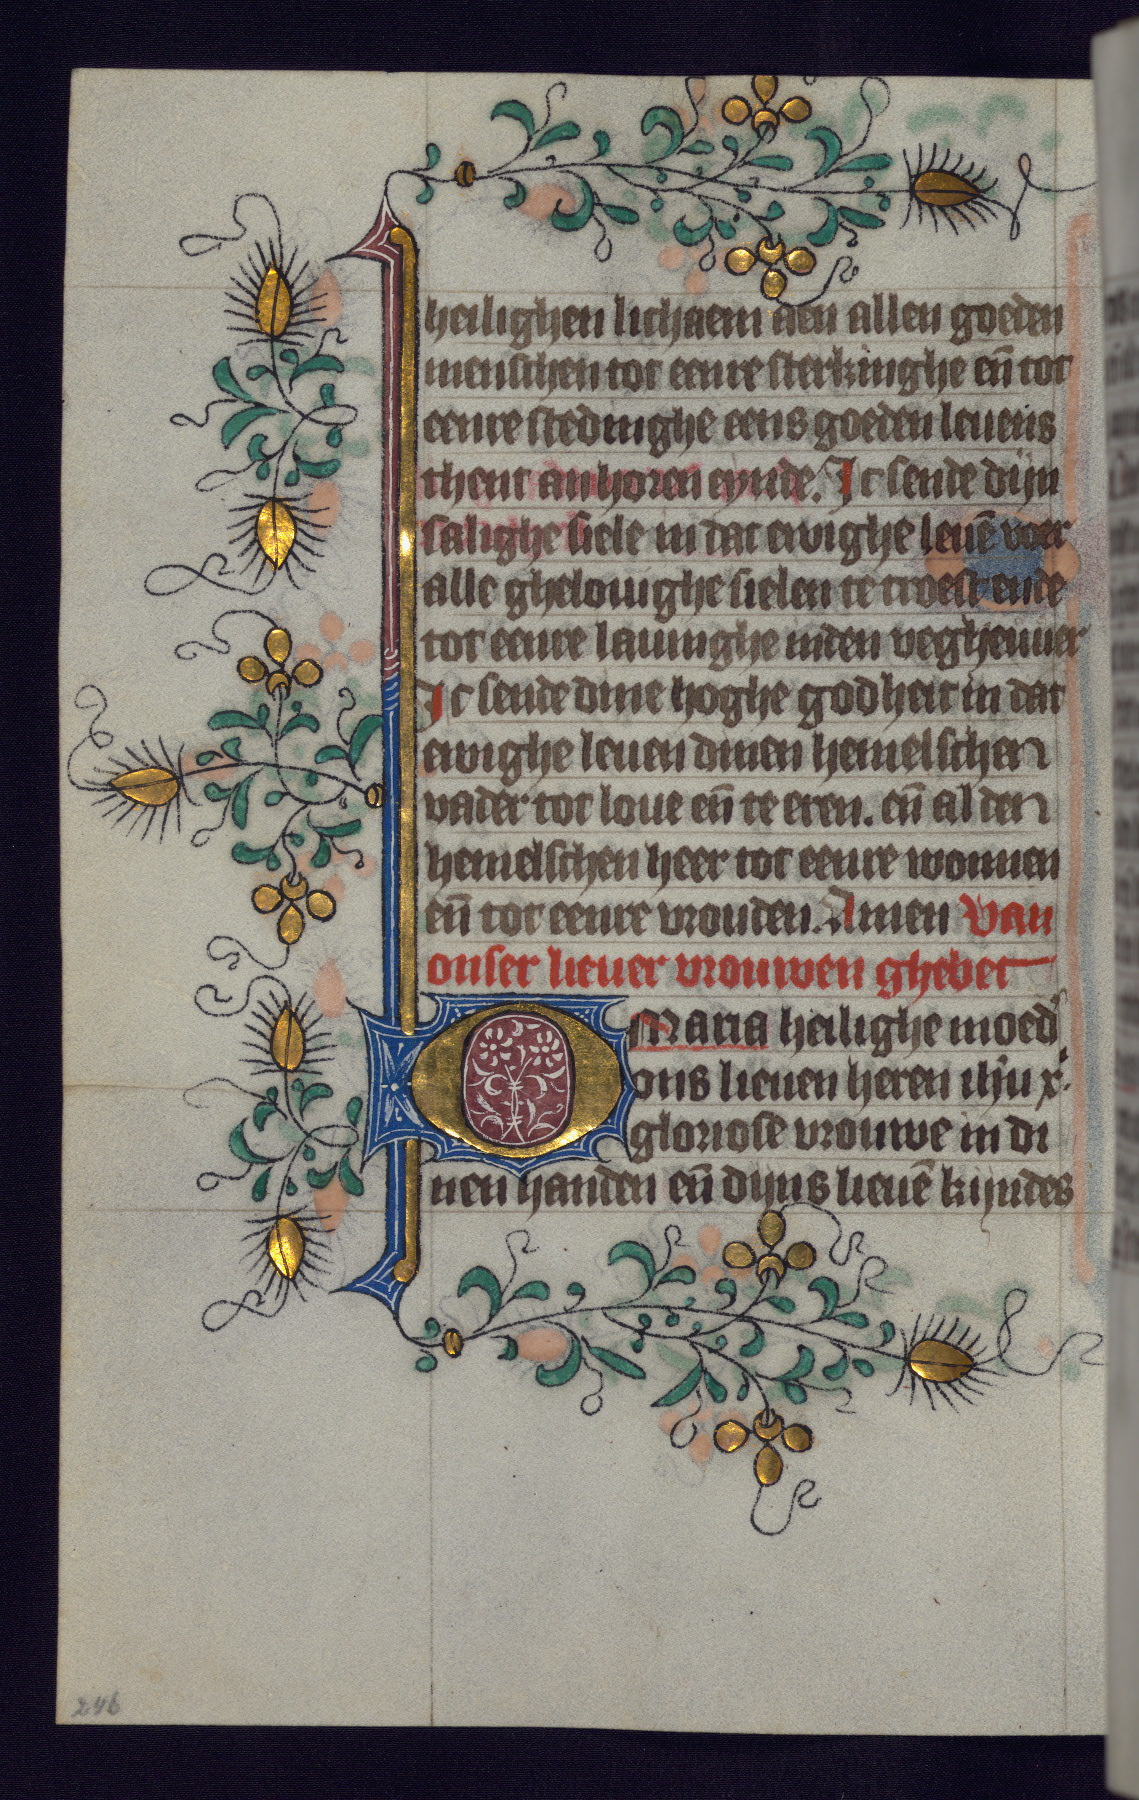 heilighen lichaem aen allen goeden
menschen tot eenre sterkinghe en̄ tot
eenre stedinghe eens goeden leuens
thent an horen eynde. Ic sende dijn
salighe siele in dat ewighe leuē voer
alle ghelouighe sielen te troest ende
tot eenre lauinghe inden veghevuer
Ic sende dine hoghe godheit in dat
ewighe leuen dinen hemelschen
vader tot loue en̄ te eren. en̄ al den
hemelschen heer tot eenre wonnen
en̄ tot eenre vrouden. Amen Van
onser lieuer vrouwen ghebet
O Maria heilighe moed'
ons lieuen heren ihū x'.
gloriose vrouwe in di
nen handen en̄ dijns lieuē kijndes
246